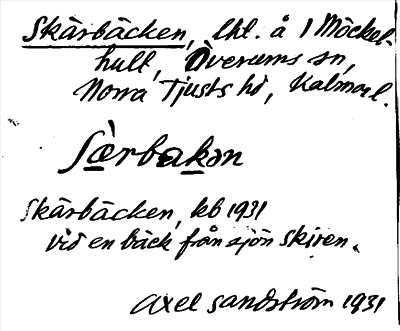 Skärbäcken, lht. å 1 Möckel-
hult, Överums sn,
Norra Tjusts hd, Kalmar l.
Særbakən
Skärbäcken, kb 1931
vid en bäck från sjön Skiren.
Axel Sandström 1931